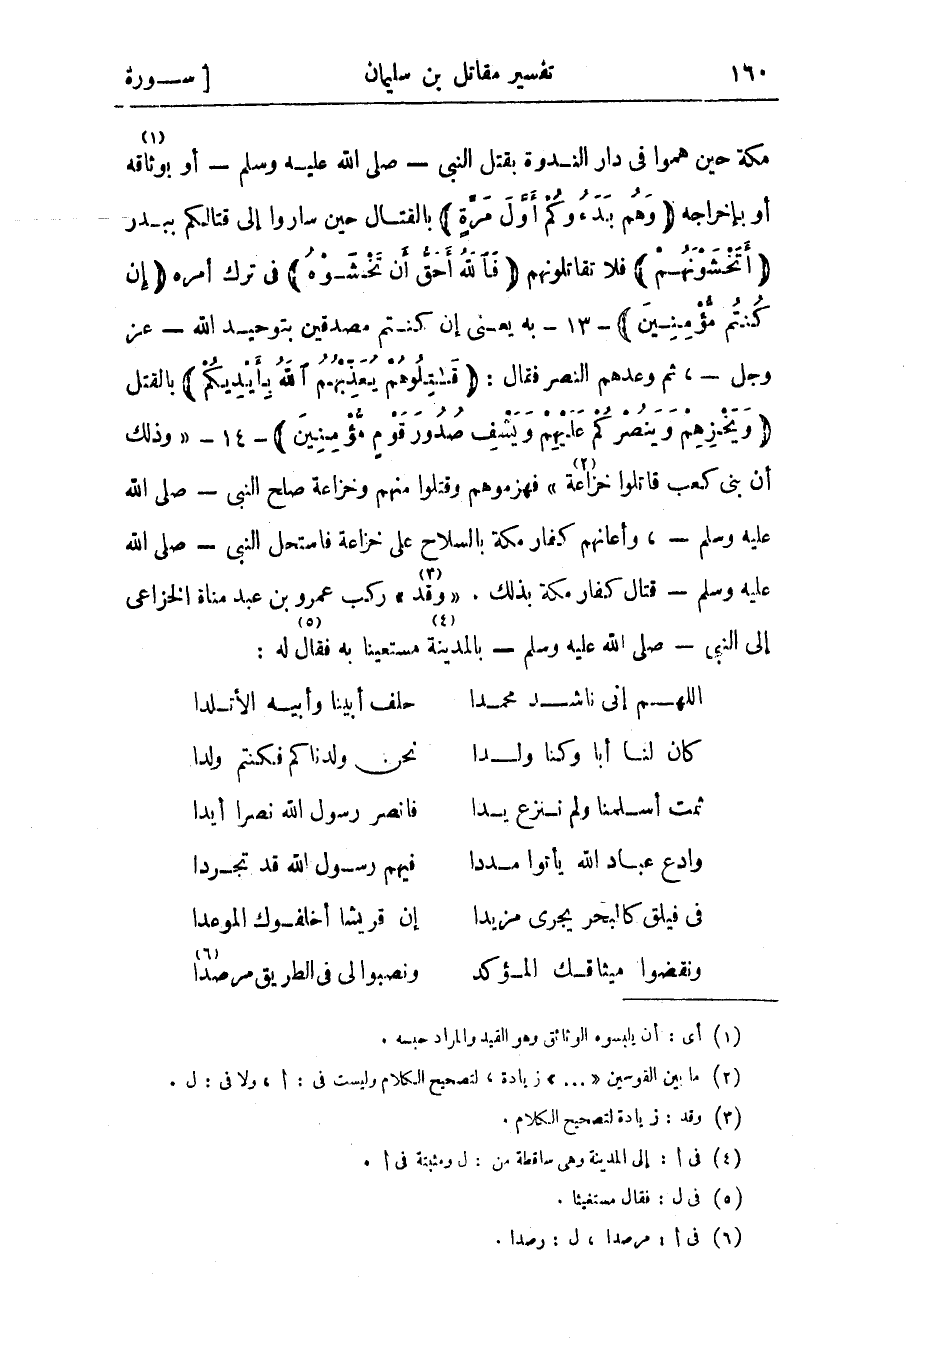 ١٦٠ تفسير مقاتل بن سليمان [ ســورة
(١)
مكة حين هموا فى دار النــدوة بقتل النبى — صلى الله عليــه وسلم — أو بوثاقه
أو بإخراجه ﴿ وَهُم بَدَءُوكُمْ أَوَّلَ مَرَّةٍ ﴾ بالقتــال حين ساروا إلى قتالكم ببــدر
﴿ أَتَخْشَوْنَهُــمْ ﴾ فلا تقاتلونهم ﴿ فَٱللَّهُ أَحَقُّ أَن تَخْشَــوْهُ ﴾ فى ترك أمره ﴿ إِن
كُنتُم مُّؤْمِنِــينَ ﴾ - ١٣ - به يعــنى إن كنــتم مصدقين بتوحيــد الله — عز
وجل — ، ثم وعدهم النصر فقال : ﴿ قَـٰتِلُوهُمْ يُعَذِّبْهُــمُ ٱللَّهُ بِأَيْدِيكُمْ ﴾ بالقتل
﴿ وَيُخْزِهِمْ وَيَنصُرْكُمْ عَلَيْهِمْ وَيَشْفِ صُدُورَ قَوْمٍ مُّؤْمِنِــينَ ﴾ - ١٤ - « وذلك
(٢)
أن بنى كعب قاتلوا خزاعة » فهزموهم وقتلوا منهم وخزاعة صلح النبى — صلى الله
عليه وسلم — ، وأعانهم كفار مكة بالسلاح على خزاعة فاستحل النبى — صلى الله
(٣)
عليه وسلم — قتال كفار مكة بذلك . « وقد » ركب عمرو بن عبد مناة الخزاعى
(٤) (٥)
إلى النبى — صلى الله عليه وسلم — بالمدينة مستعينا به فقال له :
اللهــم إنى ناشــد محمــدا حلف أبينا وأبيــه الأتــلدا
كان لنــا أبا وكنا ولــدا نحن ولدناكم فكنتم ولدا
ثمت أسـلمنا ولم نــنزع يــدا فانصر رسول الله نصرا أيدا
وادع عبــاد الله يأتوا مــددا فيهم رســول الله قد تجــردا
فى فيلق كالبحر يجرى مزبدا إن قريشا أخلفــوك الموعدا
(٦)
ونقضوا ميثاقــك المــؤكد ونصبوا لى فى الطريق مرصدا
(١) أى : أن يلبسوه الوثائق وهو القيد والمراد حبسه .
(٢) ما بين القوسين « ... » زيادة ، لتصحيح الكلام وليست فى : أ ، ولا فى : ل .
(٣) وقد : زيادة لتصحيح الكلام .
(٤) فى أ : إلى المدينة وهى ساقطة من : ل ومثبتة فى أ .
(٥) فى ل : فقال مستغيثا .
(٦) فى أ : مرصدا ، ل : رصدا .